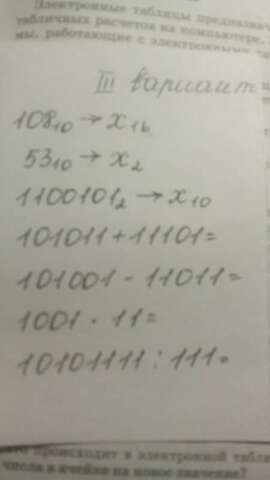 Электронные таблицы предназнач
табличных расчетов на компьютере.
мы, работающие с электронными та
III вариант
108₁₀ → x₁₆
53₁₀ → x₂
1100101₂ → x₁₀
101011 + 11101 =
101001 - 11011 =
1001 · 11 =
10101111 : 111 =
происходит в электронной табли
числа в ячейке на новое значение?